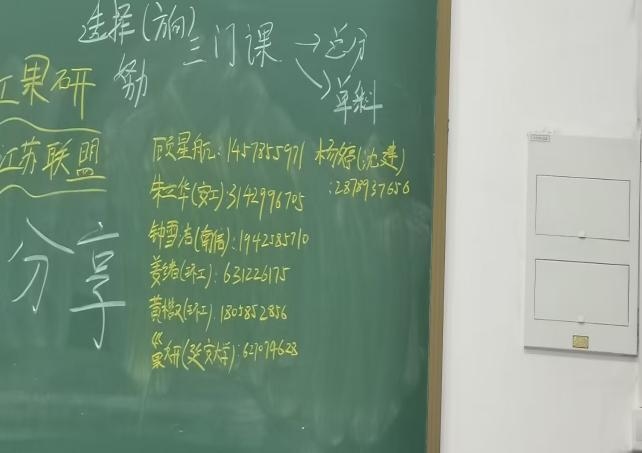 选择(方向)三门课→总分
努
单科
红果研
江苏联盟
分享
顾星航:1457855971
杨婷(沈建):2878937656
朱立华(安工):3142996705
钟雪洁(南信):1942585710
姜绪(环工):631226175
黄(环工):1805852856
果研(延安大学):627074628